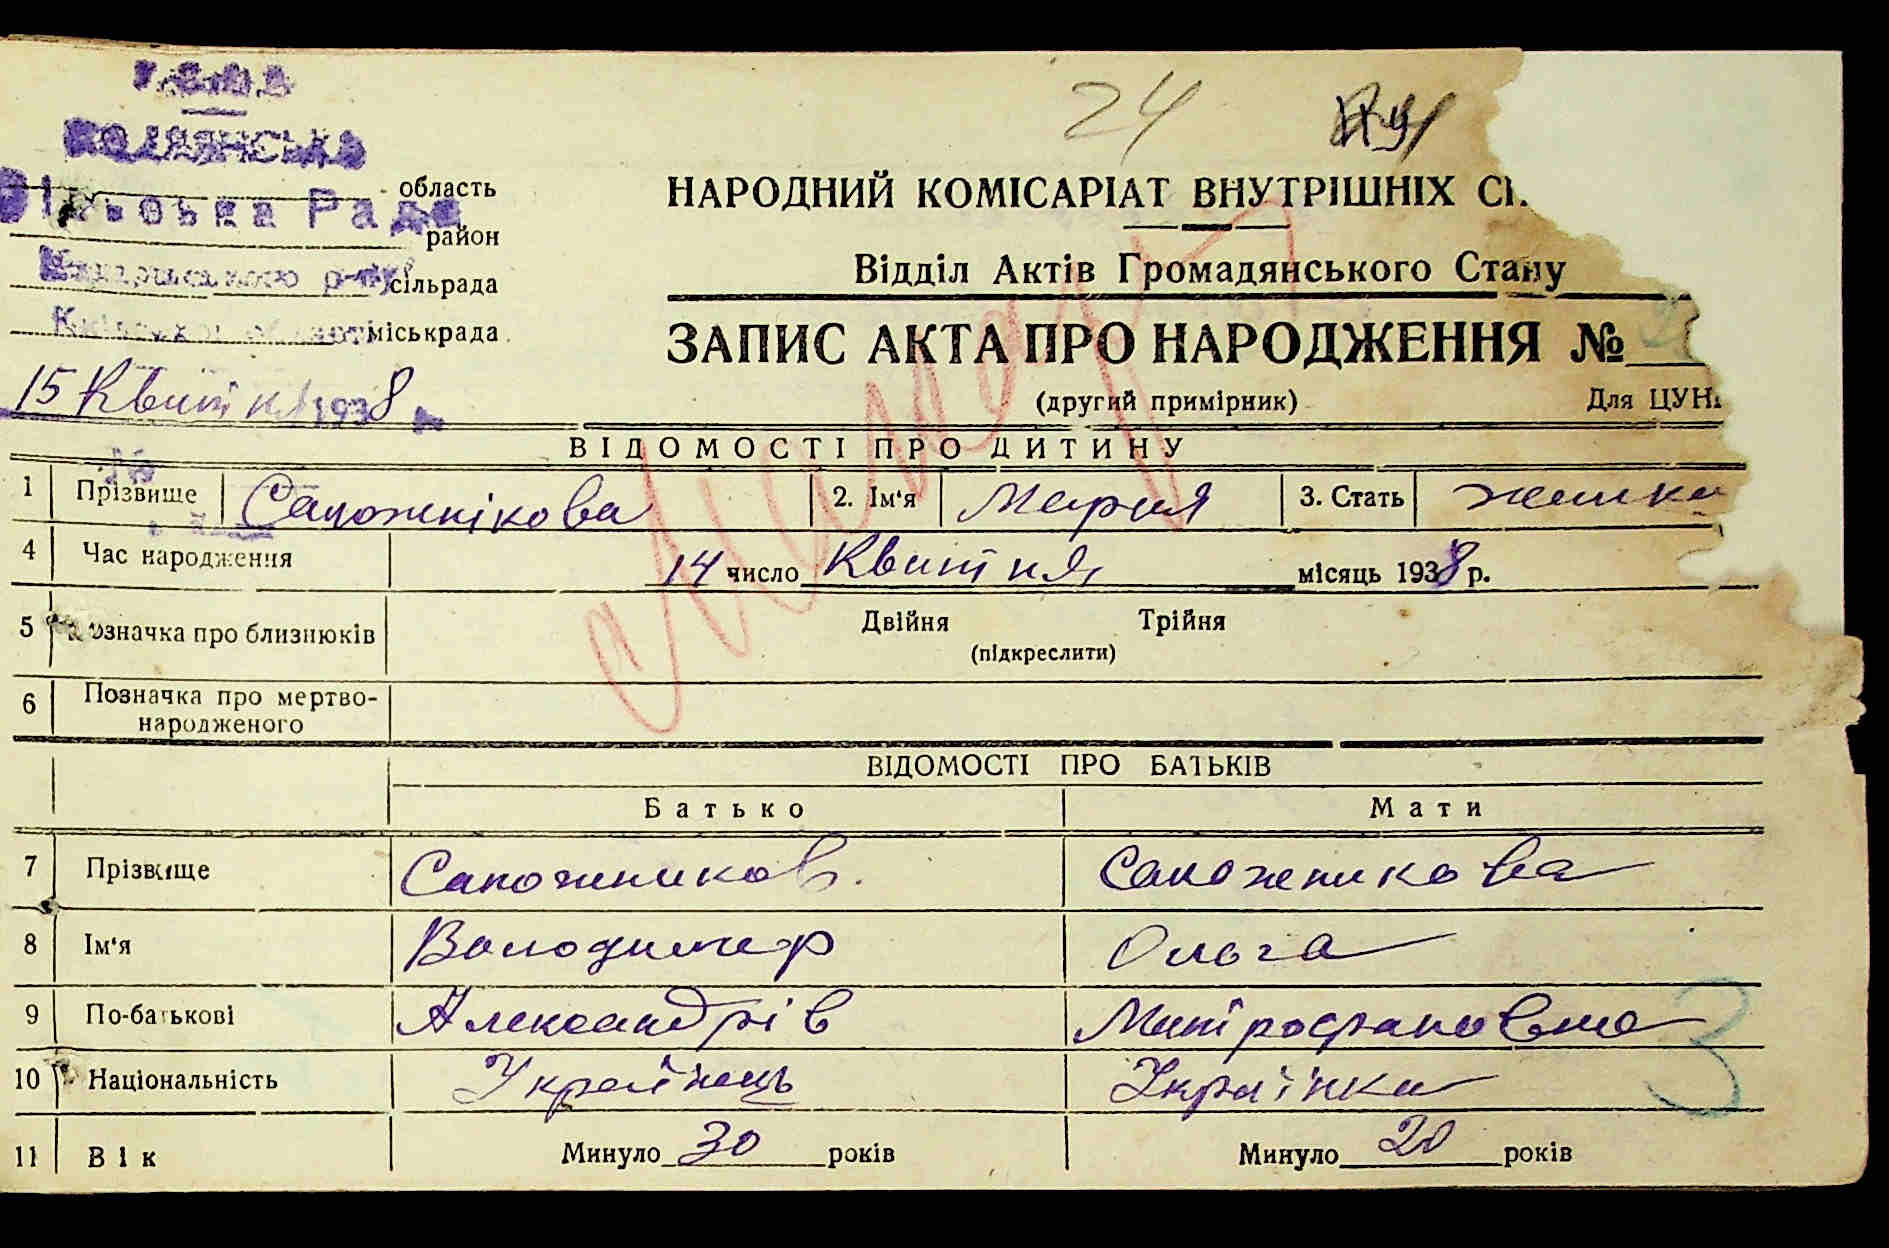 24
область
Сільська Рада
район
сільрада
міськрада
НАРОДНИЙ КОМІСАРІАТ ВНУТРІШНІХ СП
Відділ Актів Громадянського Стану
ЗАПИС АКТА ПРО НАРОДЖЕННЯ №
15 Квітня 1938
(другий примірник)
Для ЦУН
ВІДОМОСТІ ПРО ДИТИНУ
1 Прізвище Сапожнікова 2. Ім'я Мария 3. Стать
4 Час народження 14 число Квітня місяць 1938 р.
5 означка про близнюків Двійня Трійня
(підкреслити)
6 Позначка про мертво-
народженого
ВІДОМОСТІ ПРО БАТЬКІВ
Батько Мати
7 Прізвище Сапожников. Сапожникова
8 Ім'я Володимер Ольга
9 По-батькові Александрів Митрофановна
10 Національність Українець Українка
11 Вік Минуло 30 років Минуло 20 років
3